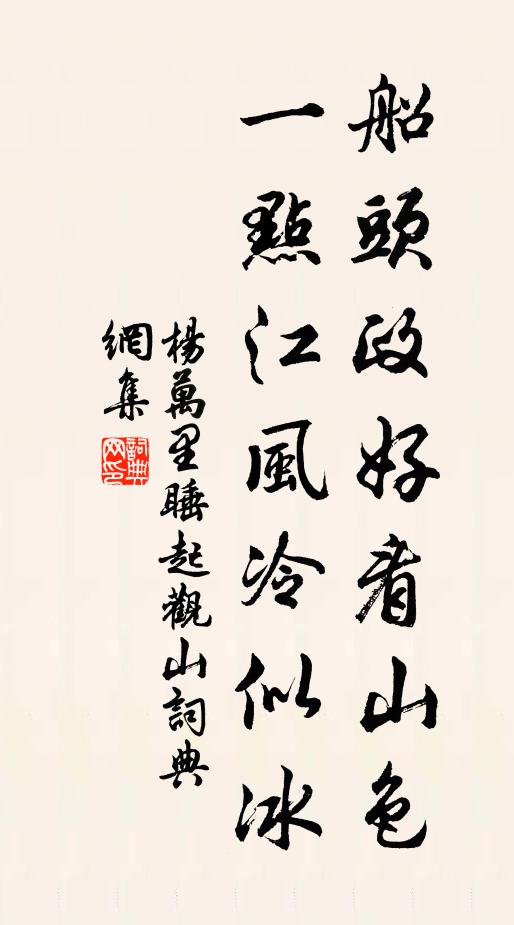 船頭政好看山色
一點江風冷似冰
楊萬里睡起觀山詞典
網集
詞典网印